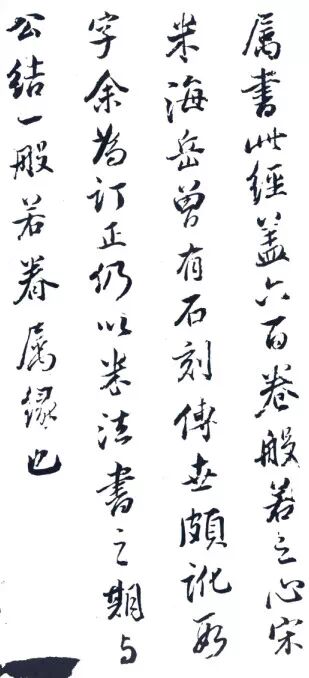 属書此經盖六百卷般若之心宋
米海岳曾有石刻傳世頗訛數
字余為訂正仍以法書之期与
公結一般若眷属緣也